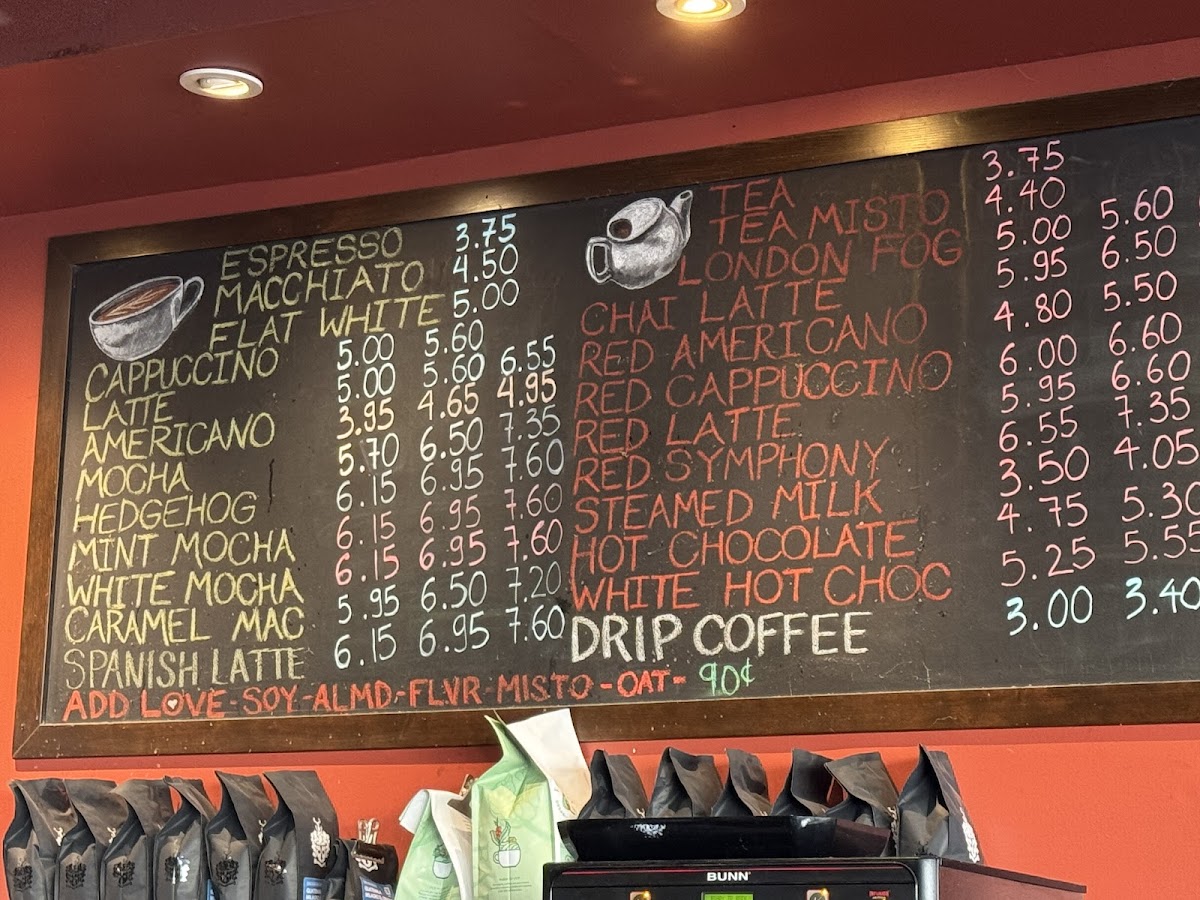 ESPRESSO 3.75
MACCHIATO 4.50
FLAT WHITE 5.00
CAPPUCCINO 5.00 5.60
LATTE 5.00 5.60 6.55
AMERICANO 3.95 4.65 4.95
MOCHA 5.70 6.50 7.35
HEDGEHOG 6.15 6.95 7.60
MINT MOCHA 6.15 6.95 7.60
WHITE MOCHA 6.15 6.95 7.60
CARAMEL MAC 5.95 6.50 7.20
SPANISH LATTE 6.15 6.95 7.60
TEA 3.75
TEA MISTO 4.40
LONDON FOG 5.00 5.60
CHAI LATTE 5.95 6.50
RED AMERICANO 4.80 5.50
RED CAPPUCCINO 6.00 6.60
RED LATTE 5.95 6.60
RED SYMPHONY 6.55 7.35
STEAMED MILK 3.50 4.05
HOT CHOCOLATE 4.75 5.30
WHITE HOT CHOC 5.25 5.55
DRIP COFFEE 3.00 3.40
ADD LOVE-SOY-ALMD-FLVR-MISTO-OAT- 90¢
BUNN